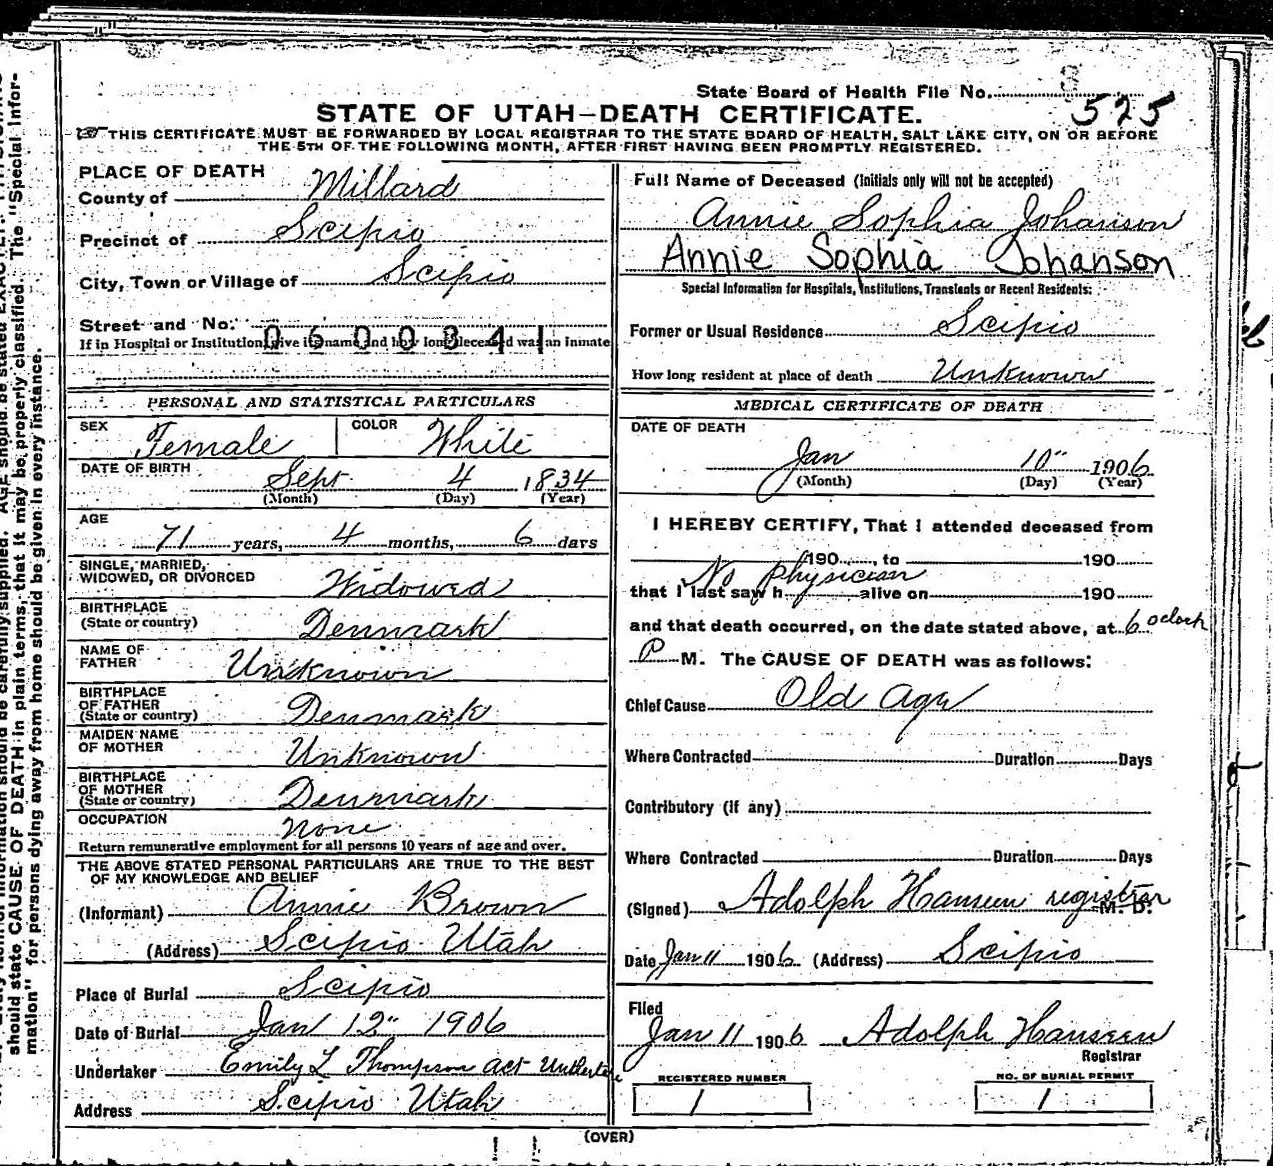 State Board of Health File No. 525
STATE OF UTAH-DEATH CERTIFICATE.
THIS CERTIFICATE MUST BE FORWARDED BY LOCAL REGISTRAR TO THE STATE BOARD OF HEALTH, SALT LAKE CITY, ON OR BEFORE
THE 5TH OF THE FOLLOWING MONTH, AFTER FIRST HAVING BEEN PROMPTLY REGISTERED.
PLACE OF DEATH
County of Millard
Precinct of Scipio
City, Town or Village of Scipio
Street and No.
0600841
If in Hospital or Institution, give its name and how long deceased was an inmate
PERSONAL AND STATISTICAL PARTICULARS
SEX Female COLOR White
DATE OF BIRTH Sept 4 1834
(Month) (Day) (Year)
AGE
71 years, 4 months, 6 days
SINGLE, MARRIED,
WIDOWED, OR DIVORCED Widowed
BIRTHPLACE
(State or country) Denmark
NAME OF
FATHER Unknown
BIRTHPLACE
OF FATHER
(State or country) Denmark
MAIDEN NAME
OF MOTHER Unknown
BIRTHPLACE
OF MOTHER
(State or country) Denmark
OCCUPATION None
Return remunerative employment for all persons 10 years of age and over.
THE ABOVE STATED PERSONAL PARTICULARS ARE TRUE TO THE BEST
OF MY KNOWLEDGE AND BELIEF
(Informant) Annie Brown
(Address) Scipio Utah
Place of Burial Scipio
Date of Burial Jan 12" 1906
Undertaker Emily L Thompson act
Address Scipio Utah
Full Name of Deceased (Initials only will not be accepted)
Annie Sophia Johanson
Annie Sophia Johanson
Special Information for Hospitals, Institutions, Transients or Recent Residents:
Former or Usual Residence Scipio
How long resident at place of death Unknown
MEDICAL CERTIFICATE OF DEATH
DATE OF DEATH
Jan 10" 1906
(Month) (Day) (Year)
I HEREBY CERTIFY, That I attended deceased from
190 , to 190
No physician
that I last saw h alive on 190
and that death occurred, on the date stated above, at 6 oclock
P M. The CAUSE OF DEATH was as follows:
Chief Cause Old Age
Where Contracted Duration Days
Contributory (if any)
Where Contracted Duration Days
(Signed) Adolph Hanseen registrar M. D.
Date Jan 11 1906 (Address) Scipio
Filed
Jan 11 1906 Adolph Hanseen
Registrar
REGISTERED NUMBER
1
NO. OF BURIAL PERMIT
1
(OVER)
should state CAUSE OF DEATH in plain terms, that it may be properly classified. The "Special Infor-
mation" for persons dying away from home should be given in every instance.